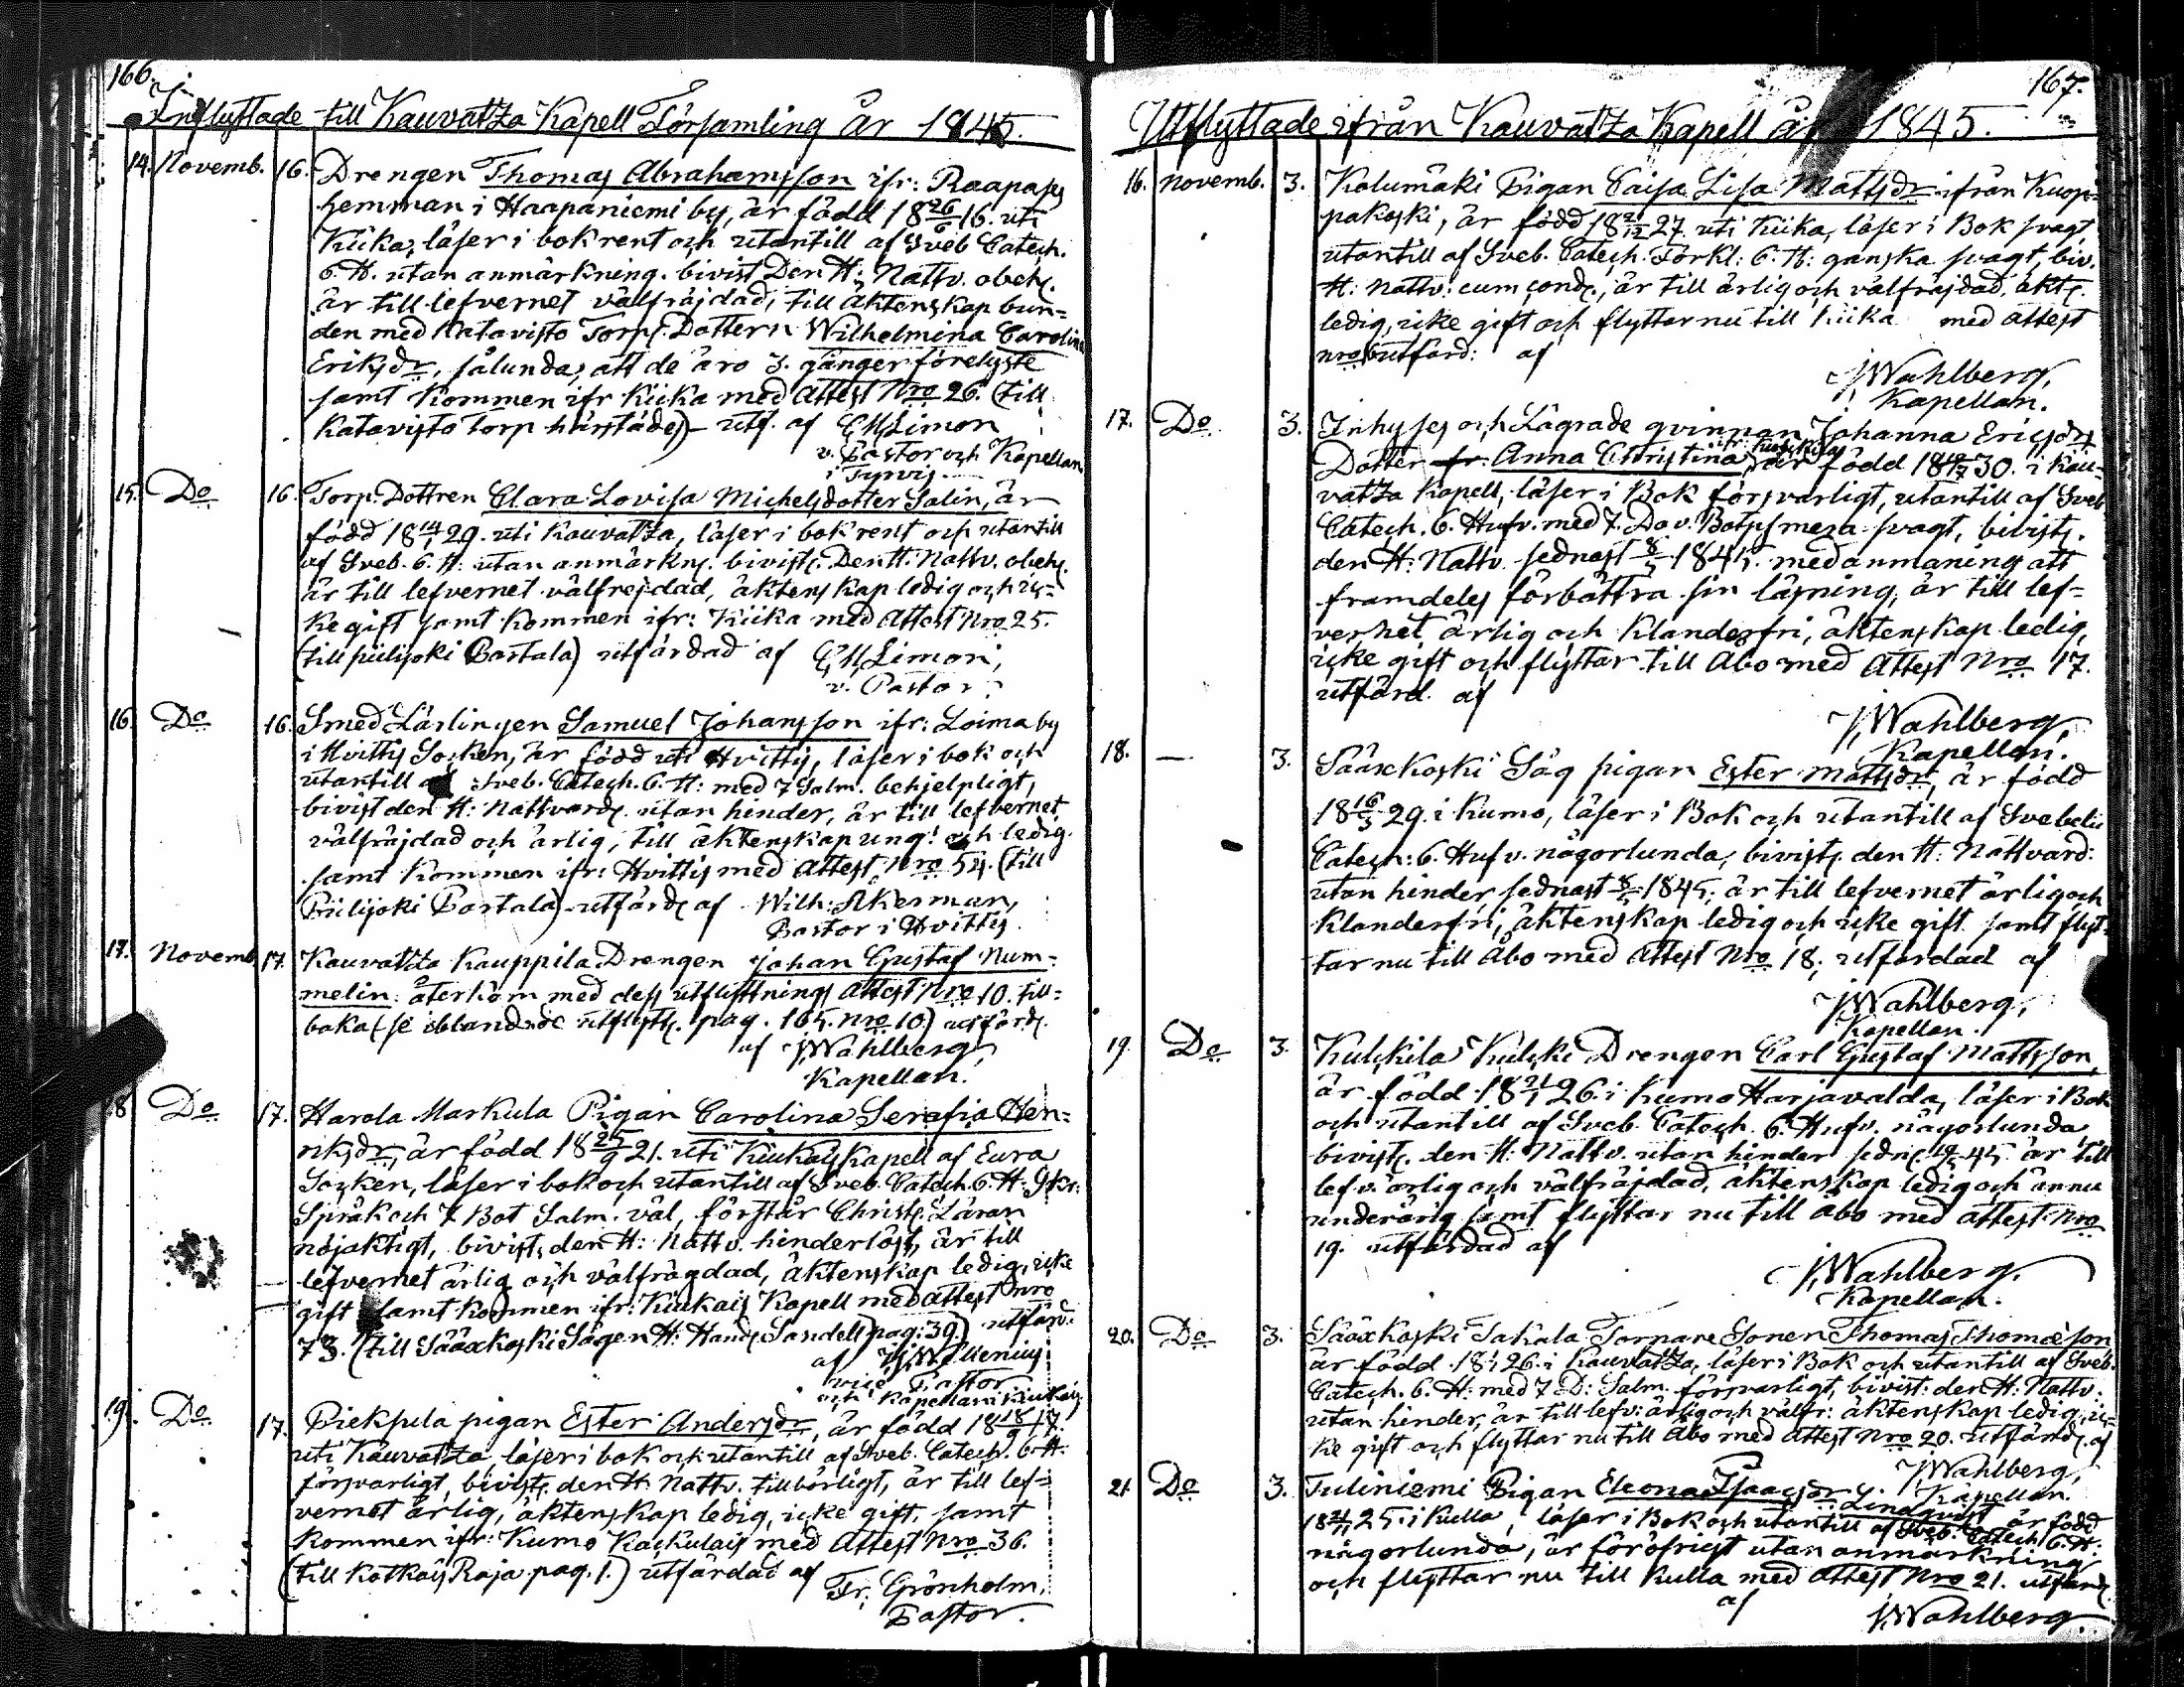 166.
Inflyttade till Kauvatza Kapell Församling år 1845.
14. Novemb. 16. Drengen Thomas Abrahamsson ifr: Raapajs
hemman i Haapaniemi by, är född 18 26/6 16. uti
Kiika, läser i bok rent och utantill af Sveb Catech.
6. H. utan anmärkning. bivist Den H: Nattv. obeh.
är till lefvernet välfräjdad, till äktenskap bun-
den med Katavisto Torp. Dottern Wilhelmina Carolina
Eriksdr, sålunda, att de äro 3. gånger förelyste
samt kommen ifr Kiika med Attest Nro 26. (till
Katavisto Torp härstädes) utf. af Limon
v. Pastor och Kapellan
i Tyrvis
15. Do 16. Torp. Dottren Clara Lovisa Michelsdotter Salin, är
född 18 14/1 29. uti Kauvatza, läser i bok rent och utantill
af Sveb. 6. H: utan anmärkn. bivist. Den H. Nattv. obeh.
är till lefvernet välfrejdad, äktenskap ledig och ic-
ke gift samt kommen ifr: Kiika med Attest Nro 25.
(till piilijoki Bastala) utfärdad af Limon,
v. Pastor.
16. Do 16. Smed Lärlingen Samuel Johansson ifr: Loima by
i Hvittis Socken, är född uti Hvittis, läser i bok och
utantill af Sveb. Catech. 6. H: med 7 Salm. behjelpligt,
bivist den H: Nattvard utan hinder, är till lefvernet
välfräjdad och ärlig, till äktenskap ung! och ledig.
samt kommen ifr: Hvittis med Attest Nro 54. (till
Piilijoki Bastala) utfärd. af Wilh. Åkerman,
Pastor i Hvittis.
17. Novemb. 17. Kauvatza Kauppila Drengen Johan Gustaf Num-
melin återkom med dess utflyttnings Attest Nro 10. till-
baka (se ibland de utflytt. pag. 165. Nro 10.) utfärd.
af JWahlberg
Kapellan.
18 Do 17. Harola Markula Pigan Carolina Serafia Hen-
riksdr, är född 18 25/9 21. uti Kiukais Kapell af Eura
Socken, läser i bok och utantill af Sveb. Catech. 6. H:
Språk och 7 Bot Salm. väl, förstår Christ. Läran
nöjaktigt, bivist. den H: Nattv. hinderlöst, är till
lefvernet ärlig och välfrägdad, äktenskap ledig, icke
gift samt kommen ifr: Kiukais Kapell med Attest Nro
73. (till Sääxkoski Sågen H: Hand. Sandell pag: 39.) utfärd.
af
vice Pastor
och Kapellan i Kiukais
19. Do 17. Piekkila pigan Ester Andersdr, är född 18 18/9 17.
uti Kauvatza, läser i bok och utantill af Sveb. Catech. 6. H:
försvarligt, bivist. den H. Nattv. tillbörligt, är till lef-
vernet ärlig, äktenskap ledig, icke gift, samt
kommen ifr: Kumo Kaskulais med Attest Nro 36.
(till Kotkais Raja pag. 1.) utfärdad af
Fr. Grönholm.
Pastor.
167.
Utflyttade ifrån Kauvatza Kapell år 1845.
16. Novemb. 3. Kolumäki Pigan Caisa Lisa Mattsdr ifrån Kuop-
pakoski, är född 18 21/12 27. uti Kiika, läser i Bok svagt
utantill af Sveb. Catech. Förkl: 6. H: ganska svagt, biv.
H: Nattv: cum cond., är till ärlig och välfräjdad, äkt.
ledig, icke gift och flyttar nu till Kiika med attest
Nro utfärd: af
JWahlberg,
Kapellan.
17. Do 3. Inhyses och Lägrade qvinnan Johanna Ericsdrs
Dotter Anna Christina, är född 18 30. i Kau-
vatza Kapell, läser i Bok försvarligt, utantill af Sveb
Catech. 6. Hufv. med 7. Da v. Botps mera svagt, bivist.
den H: Nattv. sednast 1845. med anmaning att
framdeles förbättra sin läsning, är till lef-
vernet ärlig och klanderfri, äktenskap ledig,
icke gift och flyttar till Åbo med Attest Nro 17.
utfärd. af
JWahlberg,
Kapellan.
18. — 3. Sääxkoski Såg pigan Ester Mattsdr, är född
18 16/3 29. i Kumo, läser i Bok och utantill af Svebelii
Catech: 6. Hufv. någorlunda, bivist. den H: Nattvard:
utan hinder sednast 1845, är till lefvernet ärlig och
klanderfri, äktenskap ledig och icke gift samt flyt-
tar nu till Åbo med Attest Nro 18, utfärdad af
JWahlberg,
Kapellan.
19. Do 3. Kulkkila Kulcki Drengen Carl Gustaf Mattsson,
är född 18 21/1 26. i Kumo Harjavalda, läser i Bok
och utantill af Sveb. Catech. 6. Hufv. någorlunda
bivist. den H: Nattv. utan hinder sedn. 45. är till
lefv. ärlig och välfräjdad, äktenskap ledig och ännu
underårig samt flyttar nu till Åbo med attest Nro
19. utfärdad af
JWahlberg.
Kapellan.
20. Do 3. Sääxkoski Takala Torpare Sonen Thomas Thomæson
är född 18 26. i Kauvatza, läser i Bok och utantill af Sveb.
Catech. 6. H: med 7 D: Salm. försvarligt, bivist: den H: Nattv:
utan hinder, är till lefv: ärlig och välfr: äktenskap ledig, ic-
ke gift och flyttar nu till Åbo med Attest Nro 20. utfärd. af
JWahlberg,
Kapellan.
21. Do 3. Tuliniemi Pigan Eleona Isaacsdr Lindqvist är född
18 21/11 25. i Kulla, läser i Bok och utantill af Sveb. Catech 6. H:
någorlunda, är för öfrigt utan anmärkning
och flyttar nu till Kulla med attest Nro 21. utfärd.
af JWahlberg.